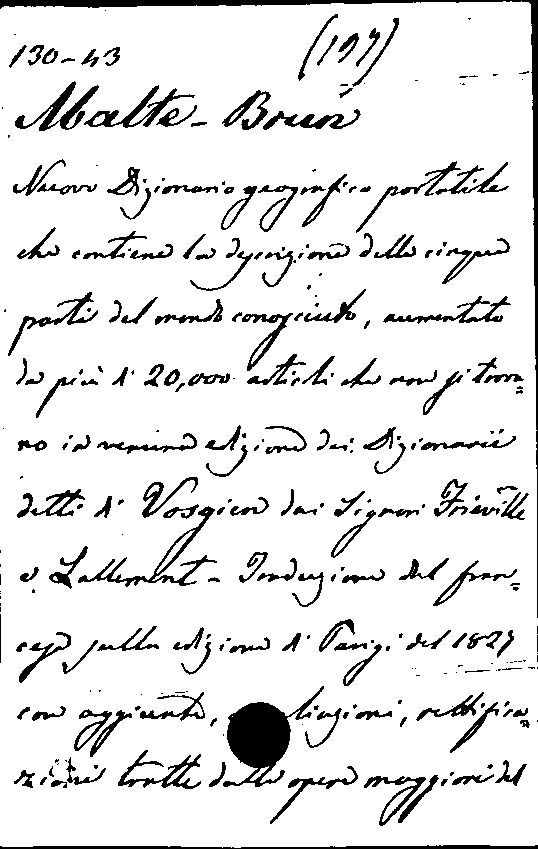 130-43 (197)
Malte-Brun
Nuovo Dizionario geografico portatile
che contiene la descrizione delle cinque
parti del mondo conosciuto, aumentato
da più di 20,000 articoli che non si trova=
no in veruna edizione dei Dizionarii
detti di Vosgien dai Signori Friéville
e Lallement - Traduzione del fran=
cese sulla edizione di Parigi del 1827
con aggiunte, rettifica=
zioni tratte dalle opere maggiori del